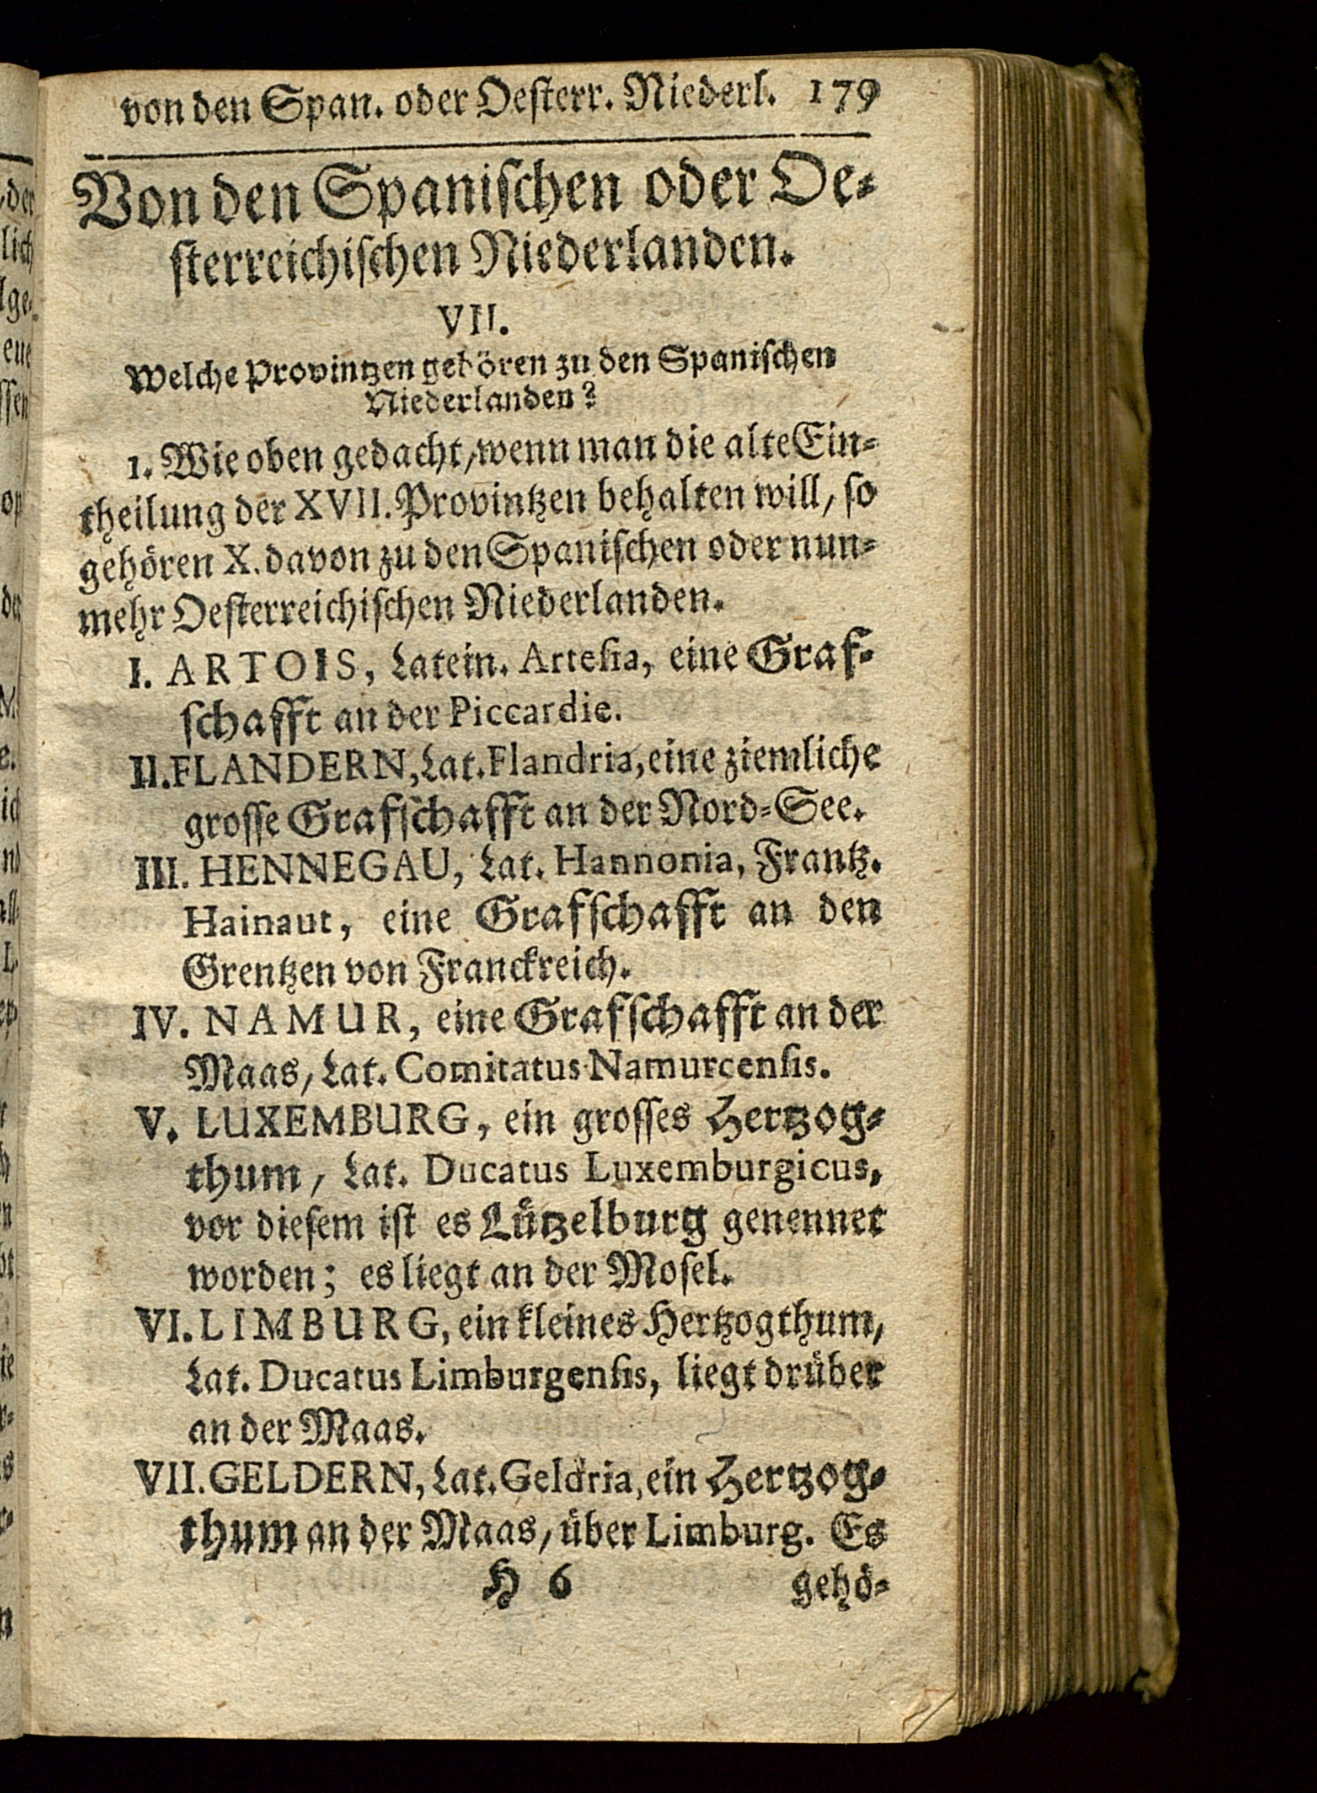 von den Span. oder Oesterr. Niederl. 179
Von den Spanischen oder Oe-
sterreichischen Niederlanden.
VII.
Welche Provintzen gehören zu den Spanischen
Niederlanden?
1. Wie oben gedacht, wenn man die alte Ein-
theilung der XVII. Provintzen behalten will, so
gehören X. davon zu den Spanischen oder nun-
mehr Oesterreichischen Niederlanden.
I. ARTOIS, Latein. Artesia, eine Graf-
schafft an der Piccardie.
II. FLANDERN, Lat. Flandria, eine ziemliche
grosse Grafschafft an der Nord-See.
III. HENNEGAU, Lat. Hannonia, Frantz.
Hainaut, eine Grafschafft an den
Grentzen von Franckreich.
IV. NAMUR, eine Grafschafft an der
Maas, Lat. Comitatus Namurcensis.
V. LUXEMBURG, ein grosses Hertzog-
thum, Lat. Ducatus Luxemburgicus,
vor diesem ist es Lützelburg genennet
worden; es liegt an der Mosel.
VI. LIMBURG, ein kleines Hertzogthum,
Lat. Ducatus Limburgensis, liegt drüber
an der Maas.
VII. GELDERN, Lat. Geldria, ein Hertzog-
thum an der Maas, über Limburg. Es
H 6 gehö-